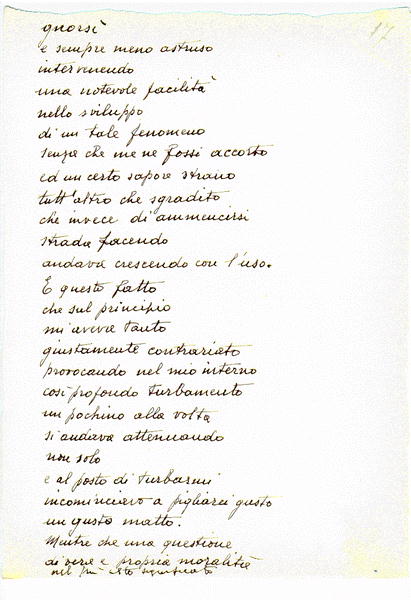 17
gnorsì
e sempre meno astruso
intervenendo
una notevole facilità
nello sviluppo
di un tale fenomeno
senza che me ne fossi accorto
ed un certo sapore strano
tutt'altro che sgradito
che invece di ammencirsi
strada facendo
andava crescendo con l'uso.
E questo fatto
che sul principio
mi aveva tanto
giustamente contrariato
provocando nel mio interno
così profondo turbamento
un pochino alla volta
si andava attenuando
non solo
e al posto di turbarmi
incominciavo a pigliarci gusto
un gusto matto.
Mentre che una questione
di vera e propria moralità
nel più alto significato